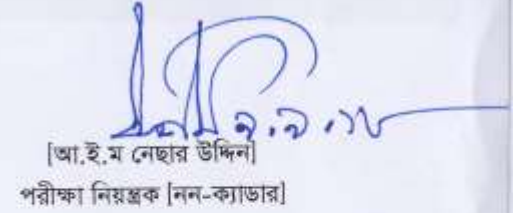 [আ.ই.ম নেছার উদ্দিন]
পরীক্ষা নিয়ন্ত্রক [নন-ক্যাডার]